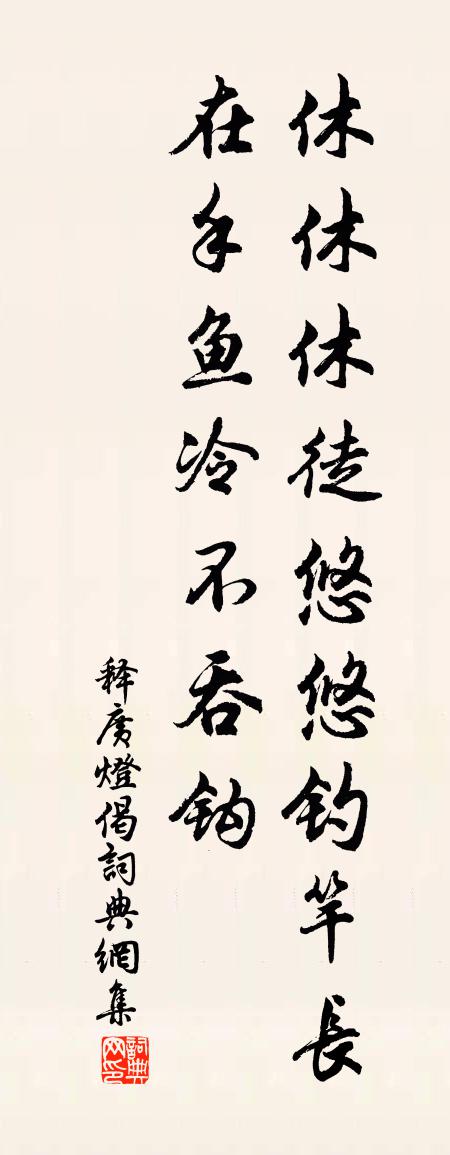 休休休徒悠悠钓竿長
在手鱼冷不吞鈎
释廣燈偈詞典網集
詞典网印